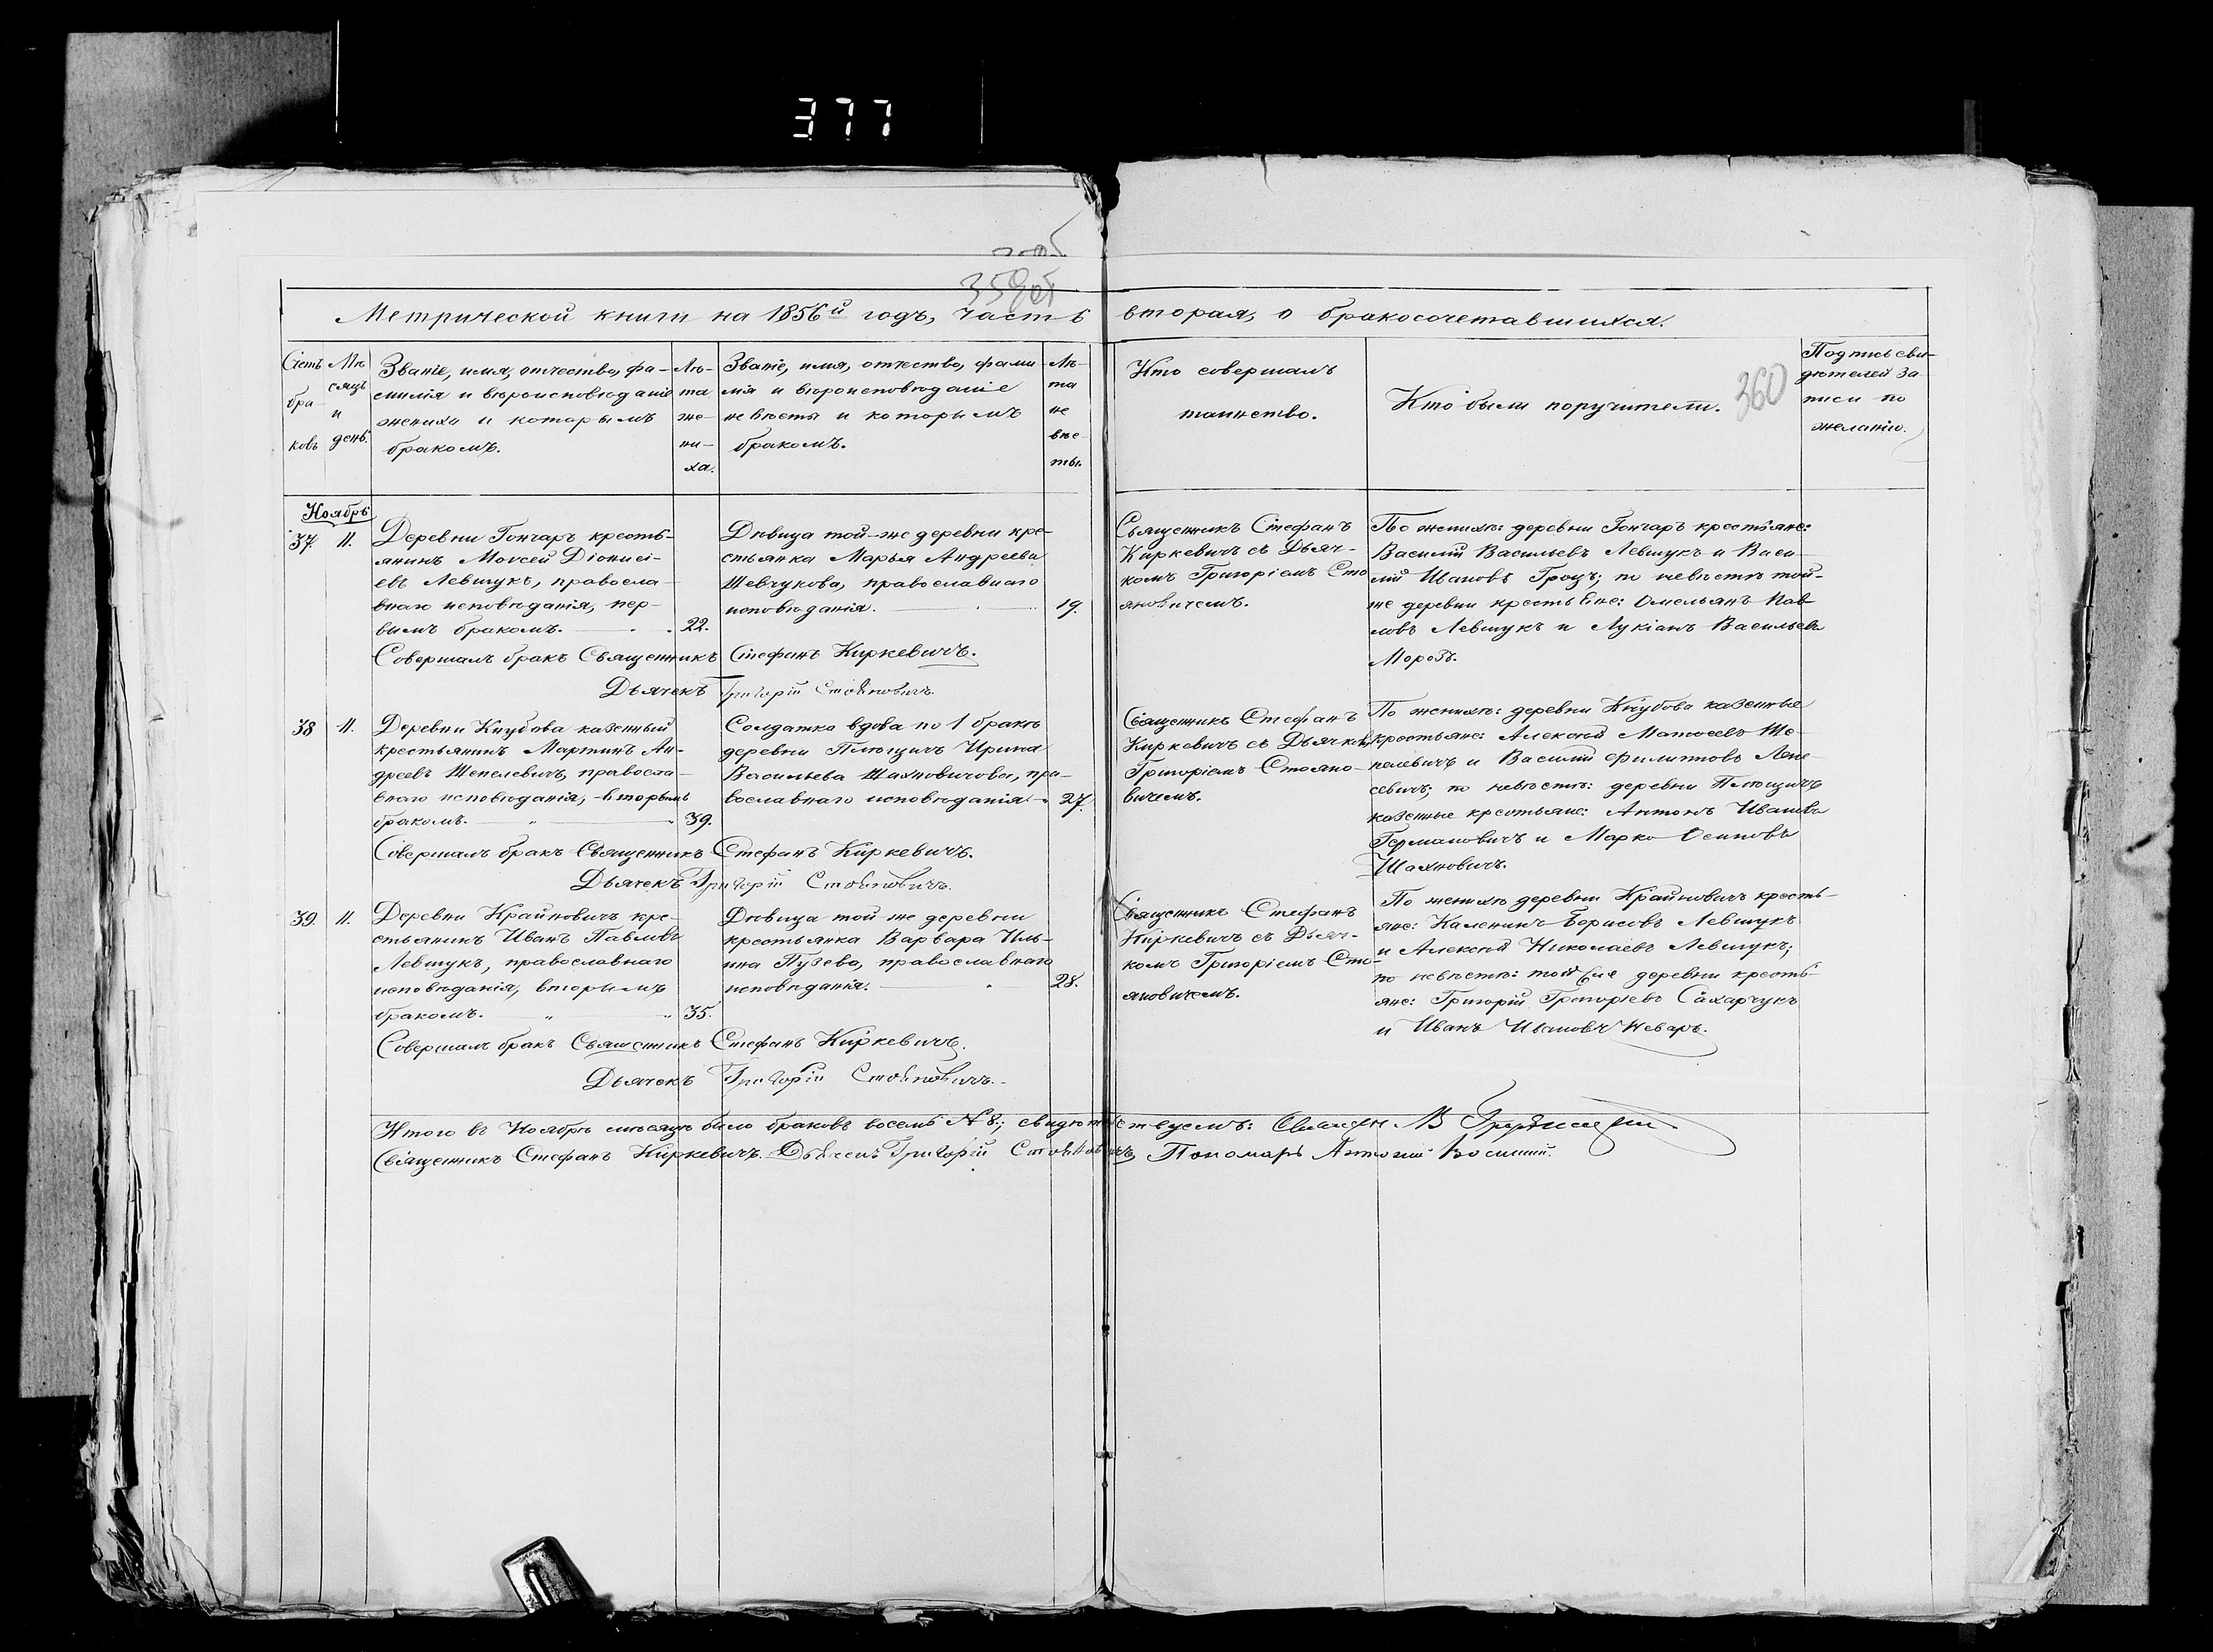 377
359об
Метрической книги на 1856й годъ, часть вторая, о бракосочетавшихся.
360
Счетъ браковъ
Мѣсяцъ и день.
Званіе, имя, отчество, фа-
милія и вѣроисповѣданіе
жениха и которымъ
бракомъ.
Лѣ-
та
же-
ни-
ха.
Званіе, имя, отчество, фами
лія и вѣроисповѣданіе
невѣсты и которымъ
бракомъ.
Лѣ-
та
не
вѣс-
ты.
Кто совершалъ
таинство.
Кто были поручители.
Подпись сви-
дѣтелей за
писи по
желанію.
Ноябрь
37. 11.
Деревни Гончаръ кресть-
янинъ Моѵсей Діонисі-
евъ Левшукъ, правосла-
внаго исповѣданія, пер-
вымъ бракомъ. 22.
Дѣвица той-же деревни кре-
стьянка Марья Андреева
Шевчукова, православнаго
исповѣданія. 19.
Священникъ Стефанъ
Киркевичъ съ Дьяч-
комъ Григоріемъ Сто
яновичемъ.
По женихѣ: деревни Гончаръ крестьяне:
Василій Васильевъ Левшукъ и Васи-
лій Ивановъ Гроцъ; по невѣстѣ той-
же деревни крестьяне: Омельянъ Пав-
ловъ Левшукъ и Лукіанъ Васильевъ
Морозъ.
Совершалъ бракъ Священникъ Стефанъ Киркевичъ.
Дьячекъ Григорій Стояновичъ.
38 11.
Деревни Кнубова казенный
крестьянинъ Мартинъ Ан-
дреевъ Шепелевичъ, правосла-
внаго исповѣданія, вторымъ
бракомъ. 39.
Солдатка вдова по 1 бракѣ
деревни Плющичъ Ирина
Васильева Шахновичова, пра-
вославнаго исповѣданія. 27.
Священникъ Стефанъ
Киркевичъ съ Дьячкомъ
Григоріемъ Стояно-
вичемъ.
По женихѣ: деревни Кнубова казенные
крестьяне: Алексѣй Матвѣевъ Ше-
пелевичъ и Василій Филипповъ
по невѣстѣ: деревни Плющичъ
казенные крестьяне: Антонъ Ивановъ
Германовичъ и Марко Осиповъ
Шахновичъ.
Совершалъ бракъ Священникъ Стефанъ Киркевичъ.
Дьячекъ Григорій Стояновичъ.
39. 11.
Деревни Крайновичъ кре-
стьянинъ Иванъ Павловъ
Левшукъ, православнаго
исповѣданія, вторымъ
бракомъ. 35.
Дѣвица той-же деревни
крестьянка Варвара Иль-
ина Пузево, православнаго
исповѣданія. 28.
Священникъ Стефанъ
Киркевичъ съ Дьяч-
комъ Григоріемъ Сто-
яновичемъ.
По женихѣ деревни Крайновичъ кресть-
яне: Каленикъ Борисовъ Левшукъ
и Алексѣй Николаевъ Левшукъ;
по невѣстѣ: той же деревни кресть-
яне: Григорій Григорьевъ Сахарчукъ
и Иванъ Ивановъ Неваръ.
Совершалъ бракъ Священникъ Стефанъ Киркевичъ.
Дьячекъ Григорій Стояновичъ.
Итого въ Ноябрѣ мѣсяцѣ было браковъ восемь № 8; свидѣтельствуемъ:
Священникъ Стефанъ Киркевичъ. Дьячекъ Григорій Стояновичъ Пономарь Антоній